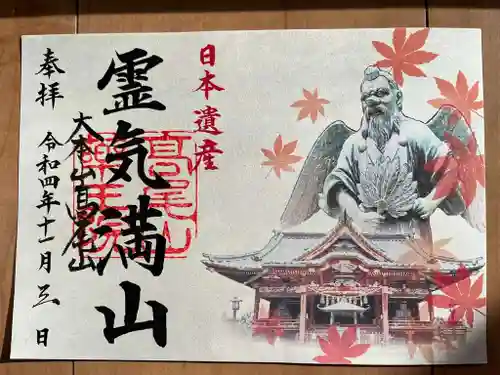 日本遺産
霊気満山
奉拝
大本山高尾山
令和四年十一月三日
高尾山
薬王院